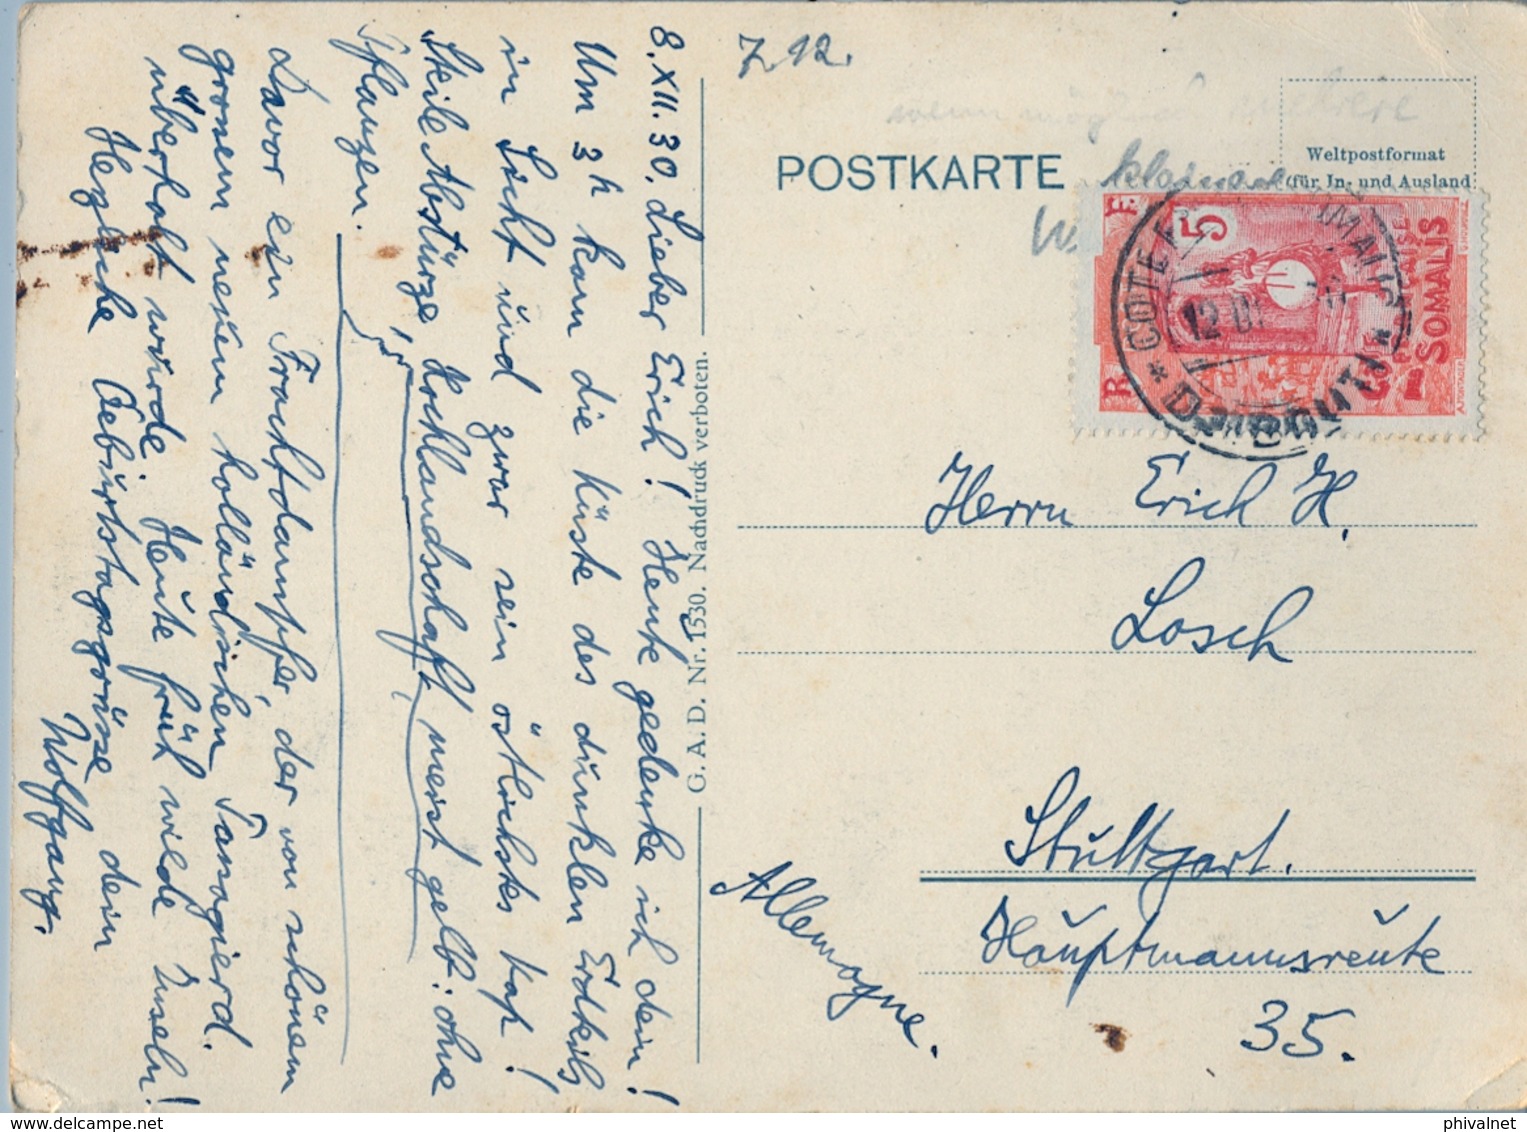 8.XII.30. Lieber Erich! Heute gedenke ich dein!
Um 3h kam die Küste des dunklen Erdteils
in Sicht und zwar sein östlichstes Kap!
Steile Abstürze, Hochlandschaft, meist gelb: ohne
Pflanzen.
Davor ein Frachtdampfer, der von schönem
grossem neuem holländischen
überholt wurde. Heute früh wilde Inseln!
Herzliche Geburtstagsgrüsse dein
Wolfgang.
G. A. D. Nr. 1530. Nachdruck verboten.
7.12.
wenn mehrere
POSTKARTE
Weltpostformat
(für In- und Ausland
R F
5
COTE
SOMALIS
12
DJIBOUTI
Herrn Erich H.
Losch
Stuttgart.
Hauptmannsreute
35.
Allemagne.
phivalnet